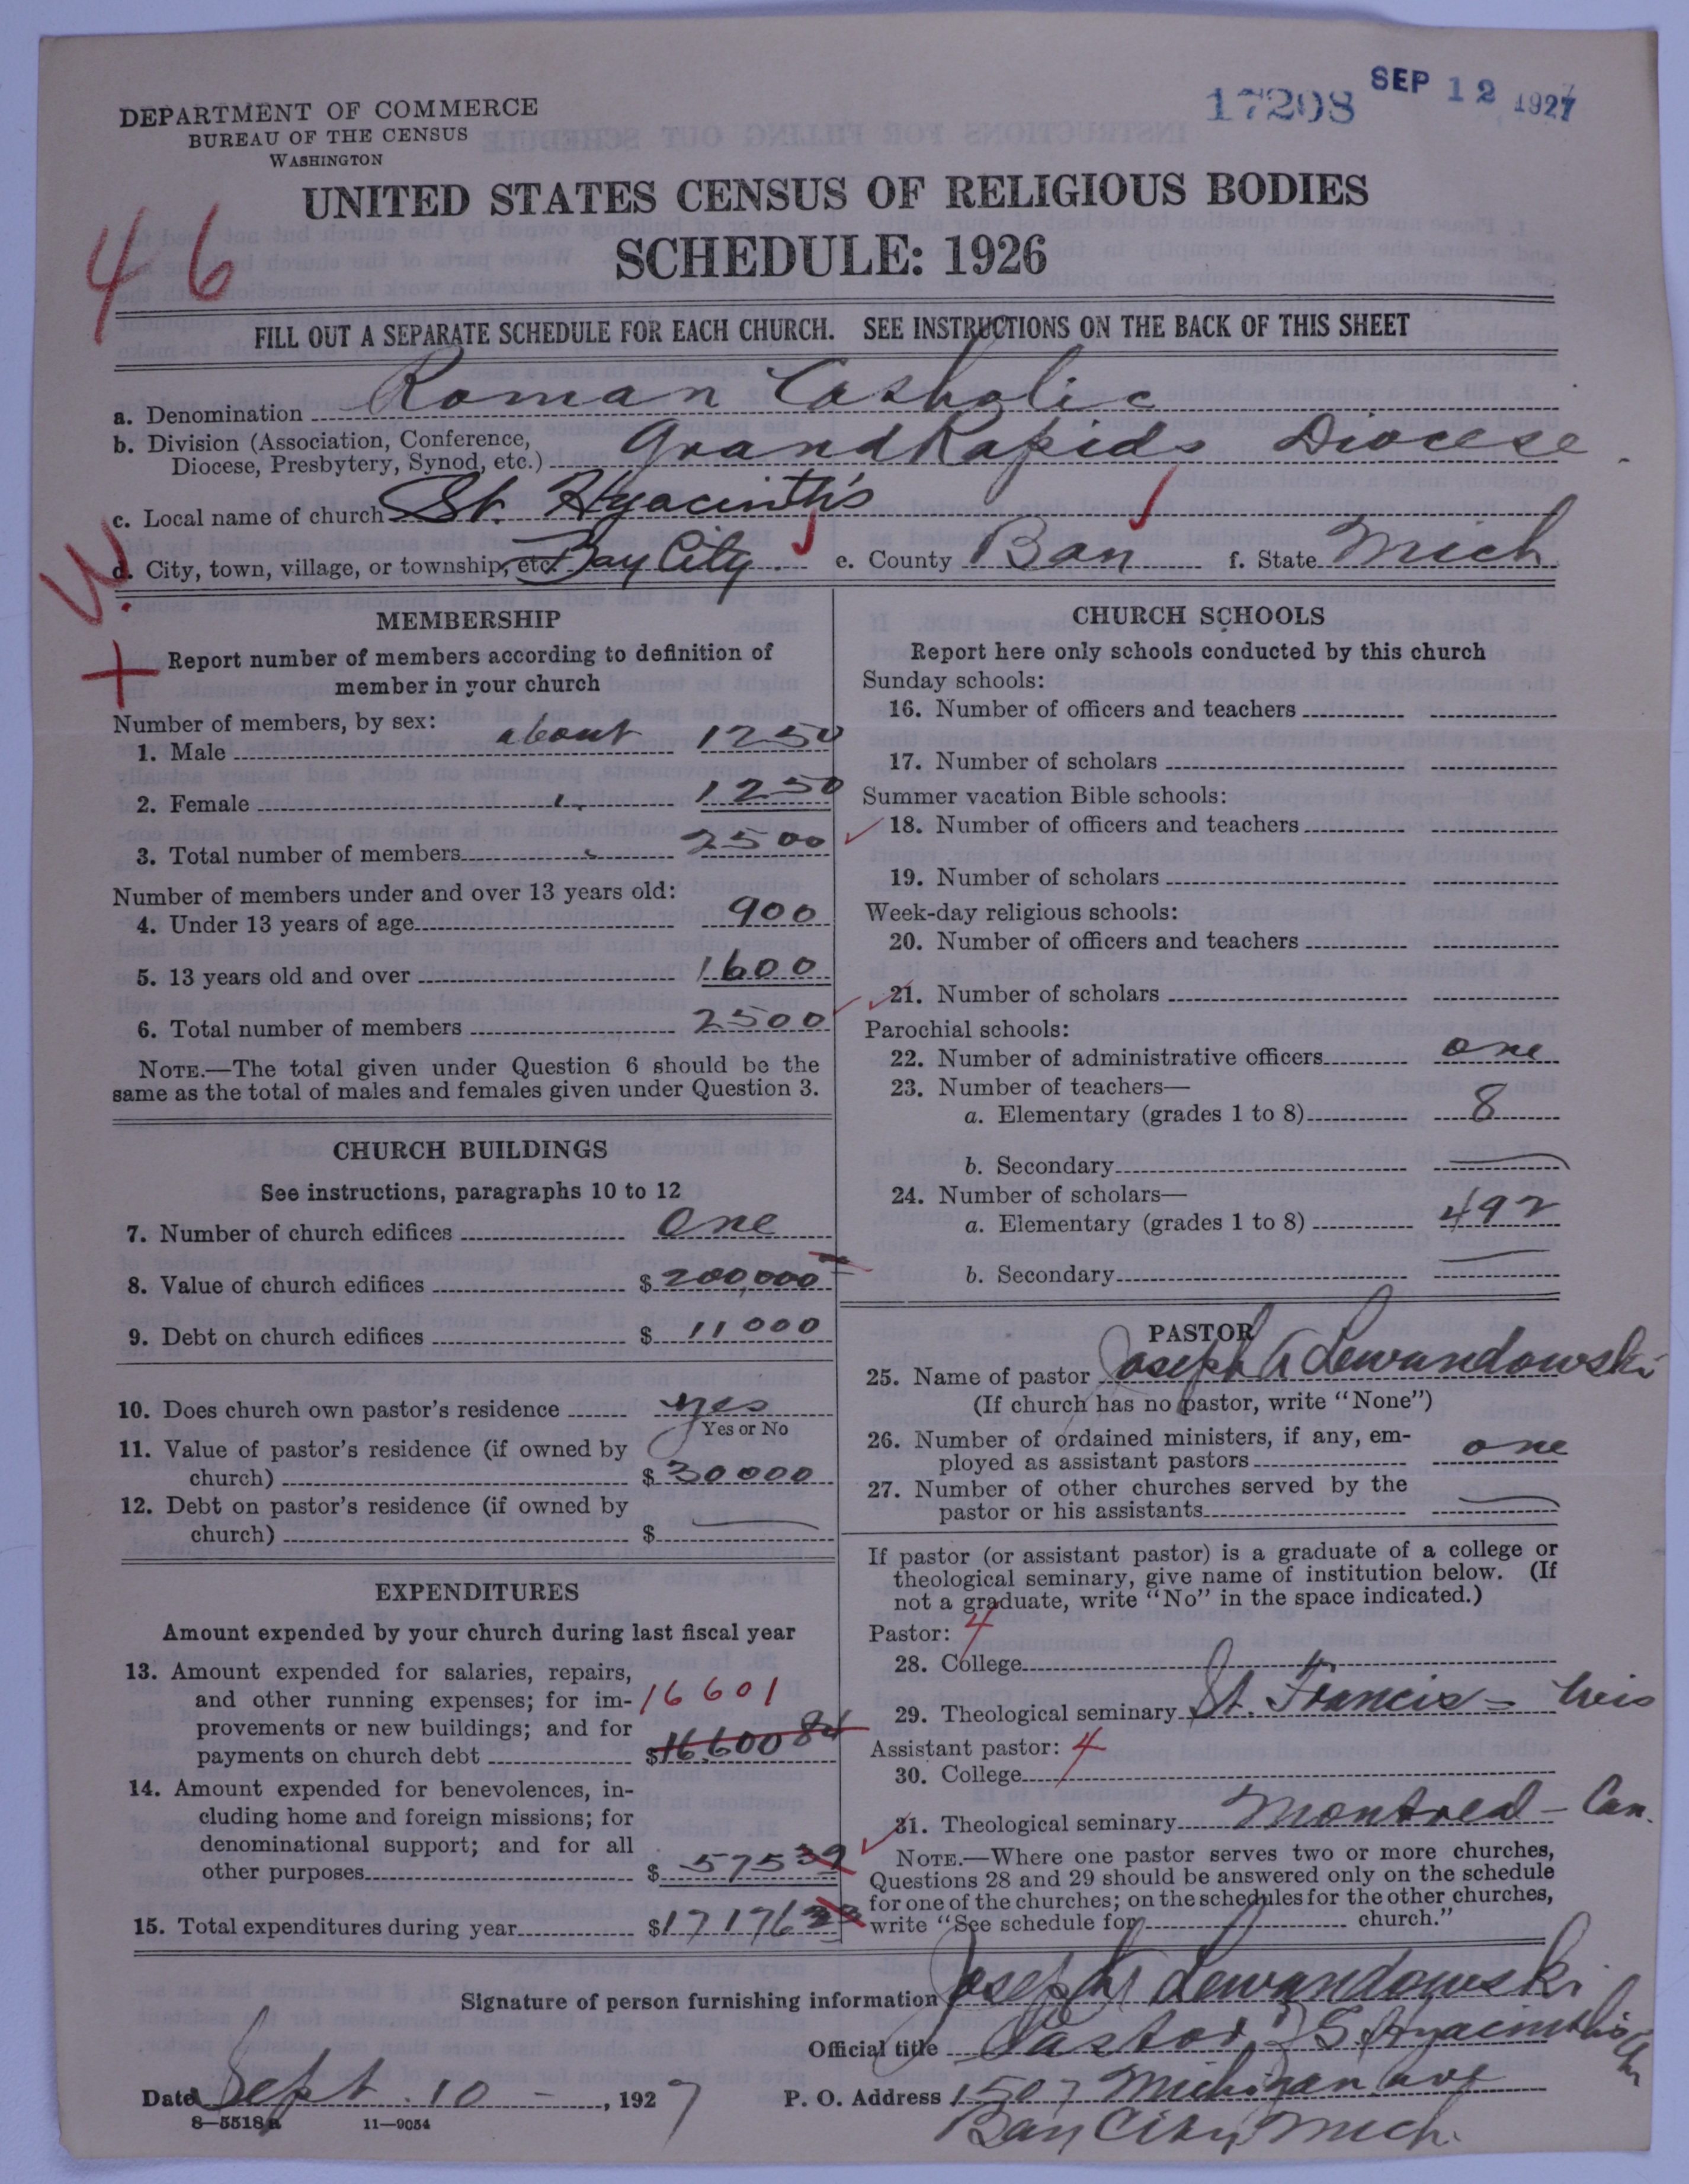 17208 SEP 12 1927
DEPARTMENT OF COMMERCE
BUREAU OF THE CENSUS
WASHINGTON
UNITED STATES CENSUS OF RELIGIOUS BODIES
46
SCHEDULE: 1926
FILL OUT A SEPARATE SCHEDULE FOR EACH CHURCH. SEE INSTRUCTIONS ON THE BACK OF THIS SHEET
a. Denomination Roman Catholic
b. Division (Association, Conference,
Diocese, Presbytery, Synod, etc.) Grand Rapids Diocese
c. Local name of church St. Hyacinth's
d. City, town, village, or township, etc. Bay City. e. County Bay f. State Mich
MEMBERSHIP
Report number of members according to definition of
member in your church
Number of members, by sex:
1. Male about 1250
2. Female " 1250
3. Total number of members " 2500
Number of members under and over 13 years old:
4. Under 13 years of age 900
5. 13 years old and over 1600
6. Total number of members 2500
NOTE.—The total given under Question 6 should be the
same as the total of males and females given under Question 3.
CHURCH BUILDINGS
See instructions, paragraphs 10 to 12
7. Number of church edifices One
8. Value of church edifices $ 200,000
9. Debt on church edifices $ 11000
10. Does church own pastor's residence yes
Yes or No
11. Value of pastor's residence (if owned by
church) $ 30000
12. Debt on pastor's residence (if owned by
church) $ —
EXPENDITURES
Amount expended by your church during last fiscal year
13. Amount expended for salaries, repairs,
and other running expenses; for im- 16601
provements or new buildings; and for
payments on church debt $16.600 84
14. Amount expended for benevolences, in-
cluding home and foreign missions; for
denominational support; and for all
other purposes $ 575 39
15. Total expenditures during year $17176 23
CHURCH SCHOOLS
Report here only schools conducted by this church
Sunday schools:
16. Number of officers and teachers
17. Number of scholars
Summer vacation Bible schools:
18. Number of officers and teachers
19. Number of scholars
Week-day religious schools:
20. Number of officers and teachers
21. Number of scholars
Parochial schools:
22. Number of administrative officers one
23. Number of teachers—
a. Elementary (grades 1 to 8) 8
b. Secondary —
24. Number of scholars—
a. Elementary (grades 1 to 8) 492
b. Secondary —
PASTOR
25. Name of pastor Joseph A Lewandowski
(If church has no pastor, write "None")
26. Number of ordained ministers, if any, em-
ployed as assistant pastors one
27. Number of other churches served by the
pastor or his assistants —
If pastor (or assistant pastor) is a graduate of a college or
theological seminary, give name of institution below. (If
not a graduate, write "No" in the space indicated.)
Pastor: 4
28. College
29. Theological seminary St. Francis - Wis
Assistant pastor: 4
30. College
31. Theological seminary Montreal - Can.
NOTE.—Where one pastor serves two or more churches,
Questions 28 and 29 should be answered only on the schedule
for one of the churches; on the schedules for the other churches,
write "See schedule for church."
Signature of person furnishing information Joseph A Lewandowski
Official title Pastor, St. Hyacinth's Ch
Date Sept. 10 -, 1927 P. O. Address 1507 Michigan Ave
8—5518a 11—9054
Bay City, Mich.